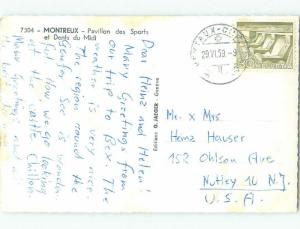 7304 - MONTREUX - Pavillon des Sports
et Dents du Midi
Dear Heinz and Helen!
Many Greetings from
our trip to Bex. The
weather is very nice.
The region around the
Genfer See is wonder-
ful. Now we go looking
at the castle Chillon.
Many greetings
Editions O. JAEGER - Genève
29.VI.59.-9
HELVETIA
Mr. x Mrs
Heinz Hauser
152 Ohlson Ave
Nutley 10 N.J.
U.S.A.